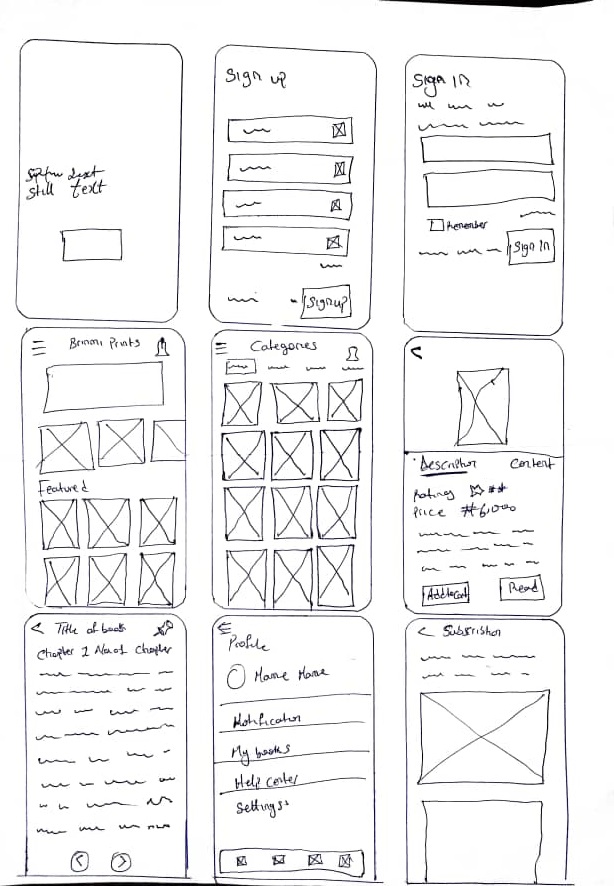 text
still text
Sign up
Sign up
Sign In
Remember
Sign In
Brimmi Prints
Featured
Categories
Description Content
Rating
Price ₦6,000
Add to Cart
Read
Title of book
Chapter 1 Name of Chapter
Profile
Name Name
Notification
My books
Help Center
Settings
Subscription